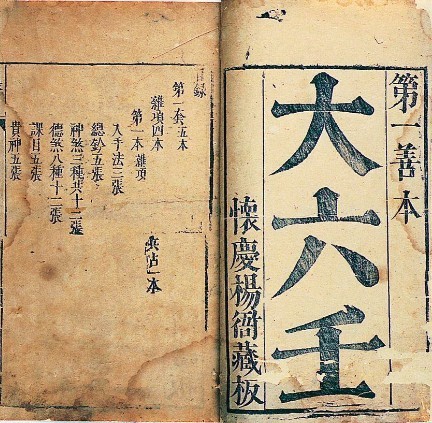 第一善本
大六壬
懷慶楊衙藏板
録
第一套五本
雜項四本
兵占一本
第一本 雜項
入手法三張
總鈔五張
神煞三種共十二張
德煞八種十二張
課目五張
貴神五張